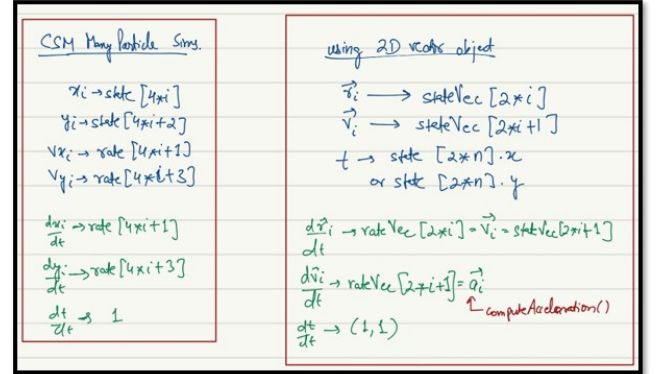 CSM Many Particle Sims.
xi → state [4*i]
yi → state [4*i+2]
vxi → rate [4*i+1]
vyi → rate [4*i+3]
dxi/dt → rate [4*i+1]
dyi/dt → rate [4*i+3]
dt/dt → 1
using 2D vector object
r⃗i → stateVec [2*i]
v⃗i → stateVec [2*i+1]
t → state [2*n].x
or state [2*n].y
dr⃗i/dt → rateVec [2*i] = v⃗i = stateVec[2*i+1]
dv⃗i/dt → rateVec [2*i+1] = a⃗i
computeAcceleration()
dt/dt → (1,1)